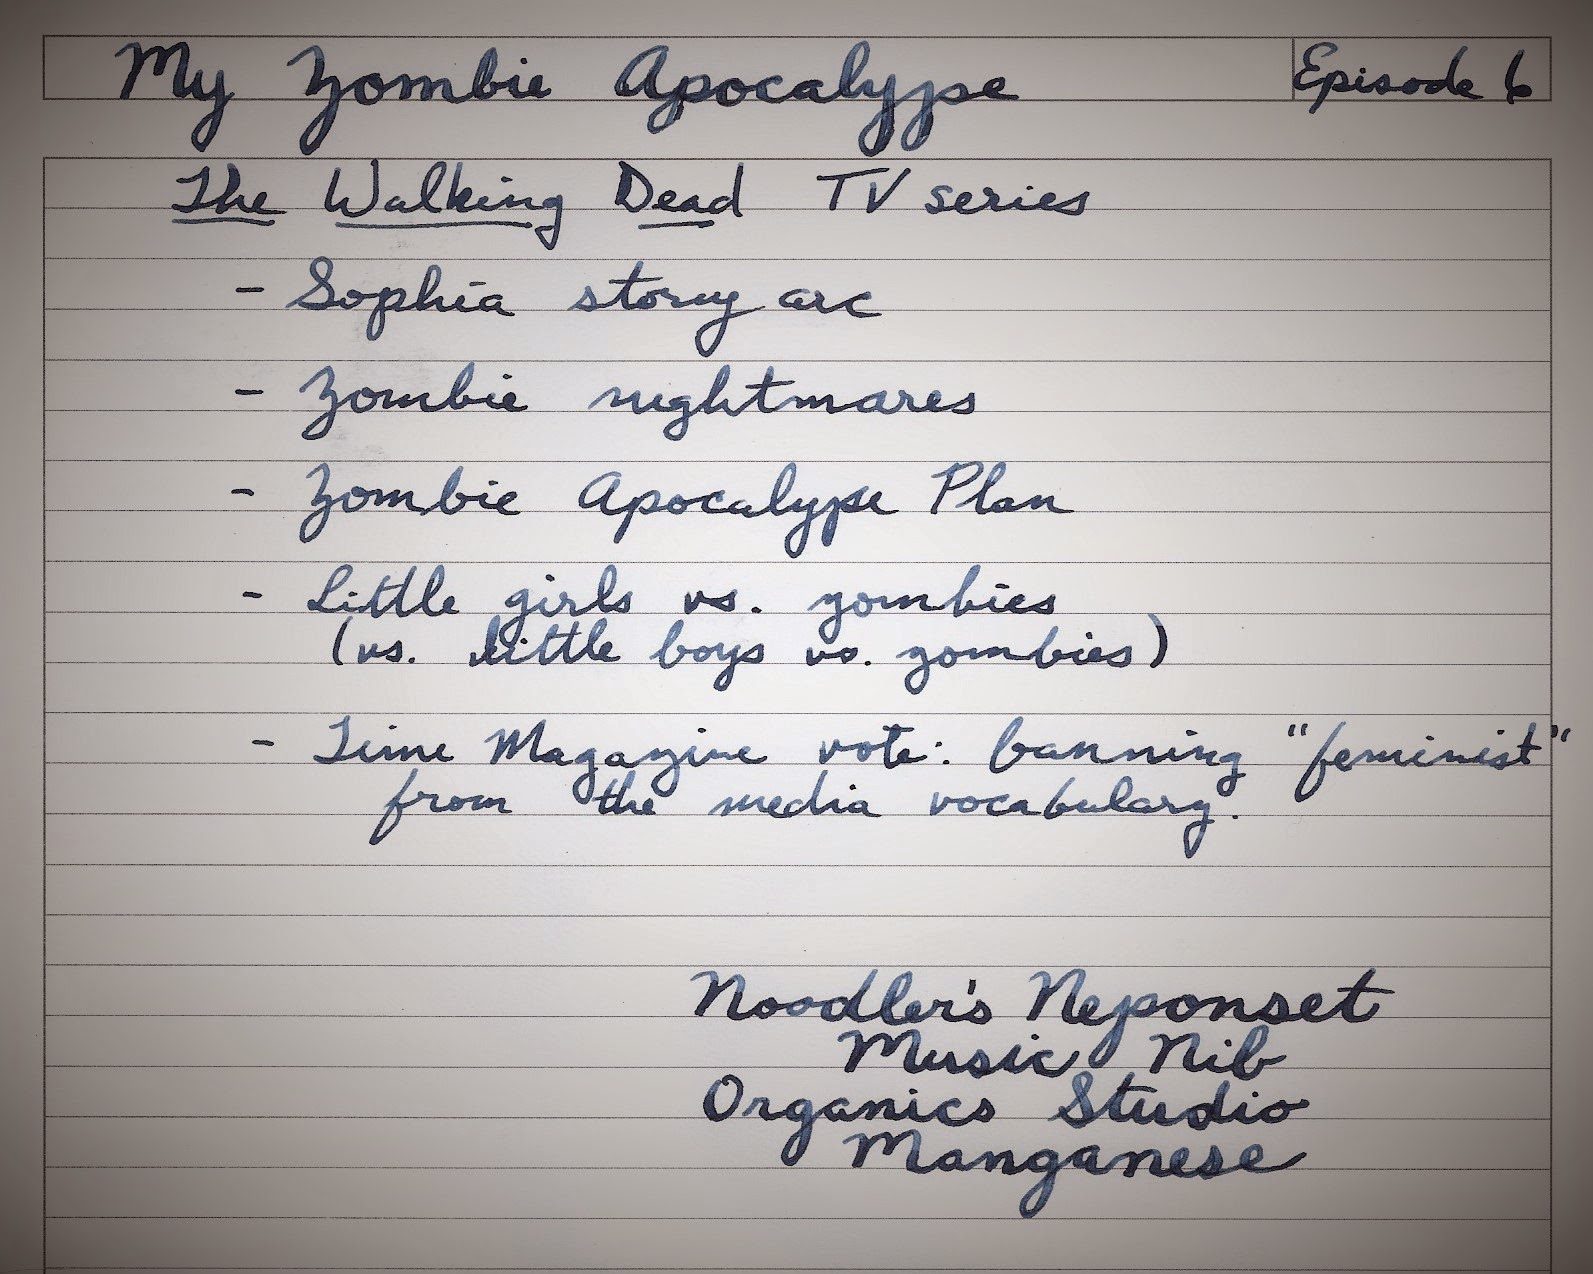 My Zombie Apocalypse Episode 6
The Walking Dead TV series
- Sophia story arc
- Zombie nightmares
- Zombie Apocalypse Plan
- Little girls vs. zombies
(vs. little boys vs. zombies)
- Time Magazine vote: banning "feminist"
from the media vocabulary.
Noodler's Neponset
Music Nib
Organics Studio
Manganese